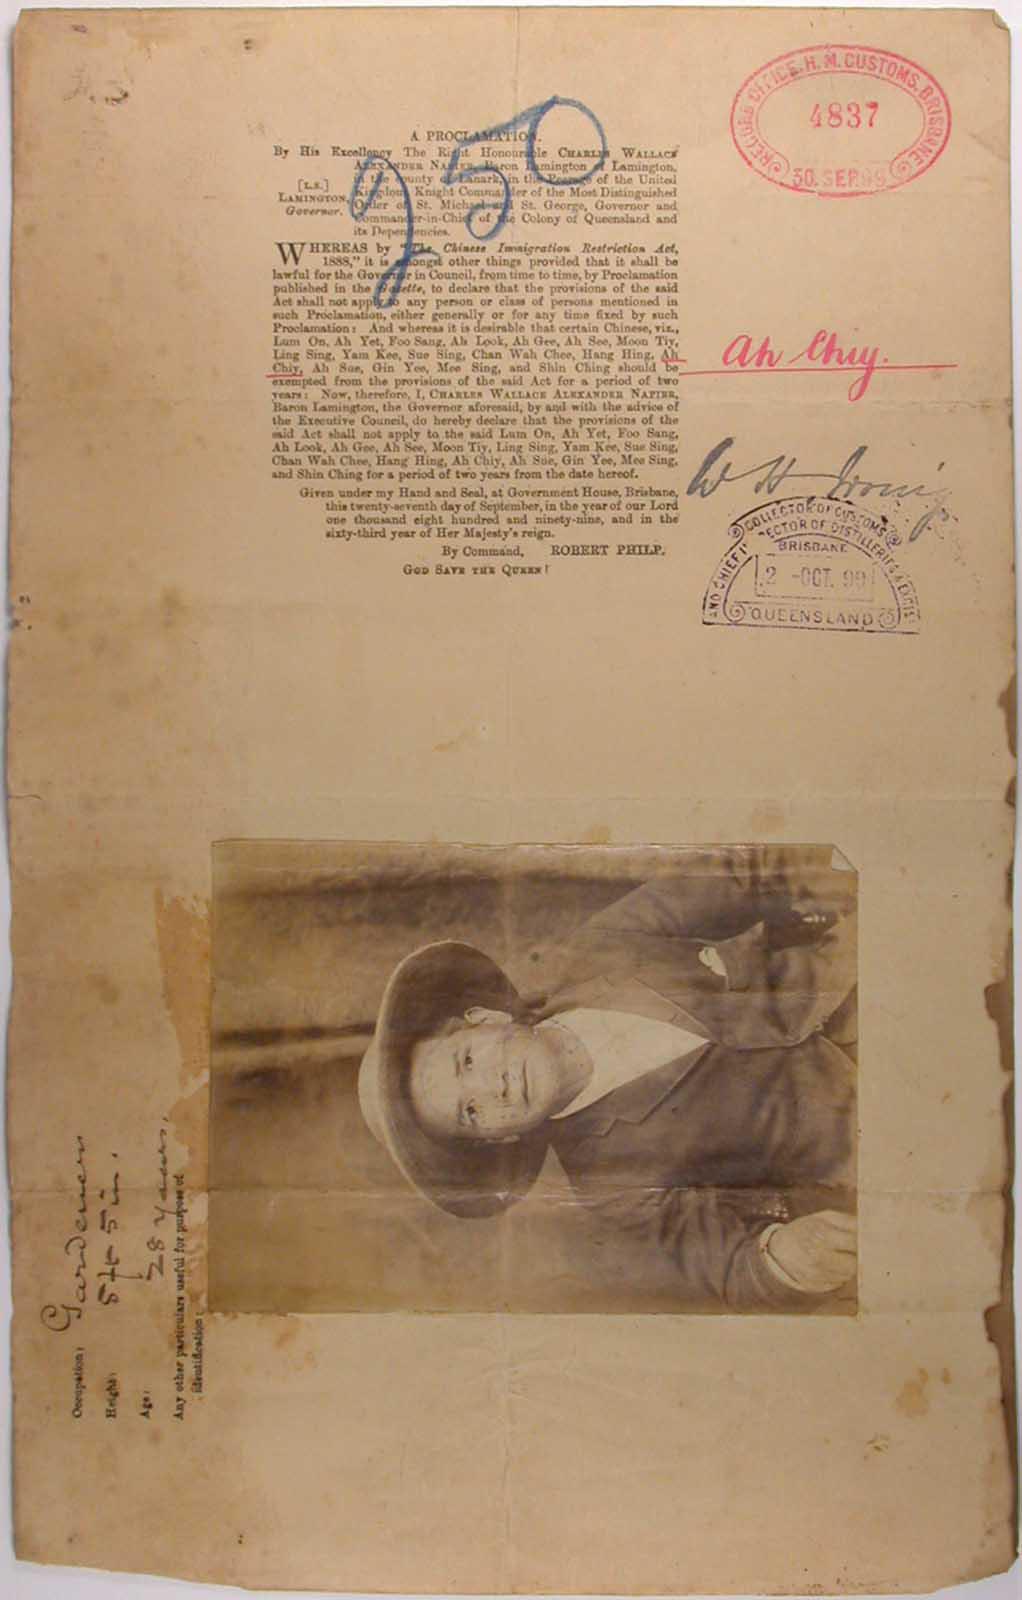 250
RECORD OFFICE. H. M. CUSTOMS. BRISBANE
4837
30. SEP. 99
A PROCLAMATION.
By His Excellency The Right Honourable CHARLES WALLACE
ALEXANDER NAPIER, Baron Lamington of Lamington,
in the county of Lanark, in the Peerage of the United
Kingdom, Knight Commander of the Most Distinguished
Order of St. Michael and St. George, Governor and
Commander-in-Chief of the Colony of Queensland and
its Dependencies.
[L.S.]
LAMINGTON,
Governor.
WHEREAS by "The Chinese Immigration Restriction Act,
1888," it is amongst other things provided that it shall be
lawful for the Governor in Council, from time to time, by Proclamation
published in the Gazette, to declare that the provisions of the said
Act shall not apply to any person or class of persons mentioned in
such Proclamation, either generally or for any time fixed by such
Proclamation: And whereas it is desirable that certain Chinese, viz.,
Lum On, Ah Yet, Foo Sang, Ah Look, Ah Gee, Ah See, Moon Tiy,
Ling Sing, Yam Kee, Sue Sing, Chan Wah Chee, Hang Hing, Ah
Chiy, Ah Sue, Gin Yee, Mee Sing, and Shin Ching should be
exempted from the provisions of the said Act for a period of two
years: Now, therefore, I, CHARLES WALLACE ALEXANDER NAPIER,
Baron Lamington, the Governor aforesaid, by and with the advice of
the Executive Council, do hereby declare that the provisions of the
said Act shall not apply to the said Lum On, Ah Yet, Foo Sang,
Ah Look, Ah Gee, Ah See, Moon Tiy, Ling Sing, Yam Kee, Sue Sing,
Chan Wah Chee, Hang Hing, Ah Chiy, Ah Sue, Gin Yee, Mee Sing,
and Shin Ching for a period of two years from the date hereof.
Given under my Hand and Seal, at Government House, Brisbane,
this twenty-seventh day of September, in the year of our Lord
one thousand eight hundred and ninety-nine, and in the
sixty-third year of Her Majesty's reign.
By Command, ROBERT PHILP.
GOD SAVE THE QUEEN!
Ah Chiy.
W H Irving
COLLECTOR OF CUSTOMS
AND CHIEF INSPECTOR OF DISTILLERIES & EXCISE
BRISBANE
2 -OCT. 99
QUEENSLAND
Occupation: Gardener
Height: 5ft 5 in.
Age: 28 Years.
Any other particulars useful for purpose of
identification: